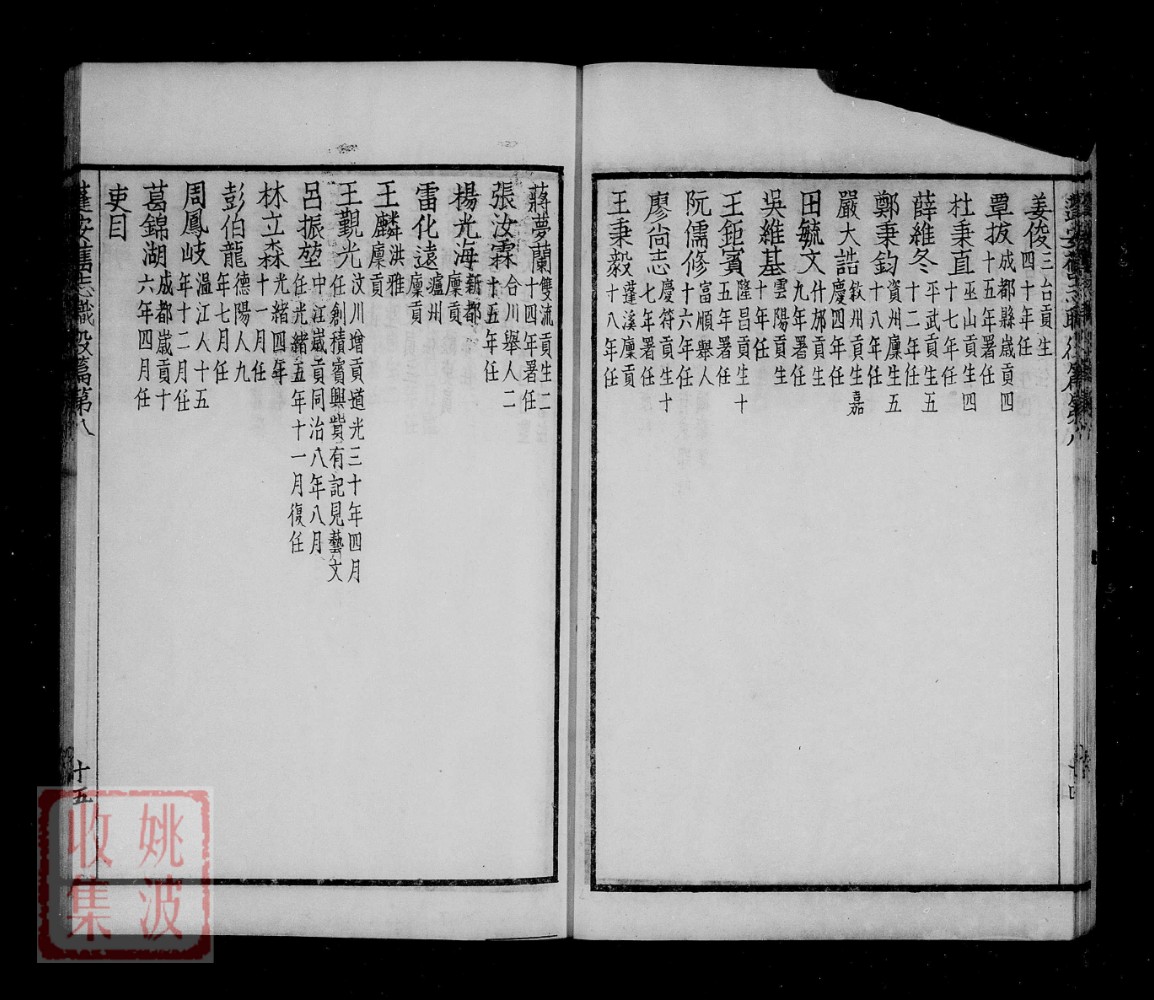 姜俊三台貢生四十年任
覃拔成都縣歲貢四十五年署任
杜秉直巫山貢生四十七年任
薛維冬平武貢生五十二年任
鄭秉鈞資州廩生五十八年任
嚴大誥敘州貢生嘉慶四年任
田毓文什邡貢生九年署任
吳維基雲陽貢生十年任
王鉅賓隆昌貢生十五年署任
阮儒修富順舉人十六年任
廖尚志慶符貢生十七年署任
王秉毅蓬溪廩貢十八年任
蔣夢蘭雙流貢生二十四年署任
張汝霖合川舉人二十五年任
楊光海新都廩貢
雷化遠瀘州廩貢
王麟洪雅廩貢
王覲光汶川增貢道光三十年四月任創積賓興貲有記見藝文
呂振堃中江歲貢同治八年八月任光緒五年十一月復任
林立森光緒四年十一月任
彭伯龍德陽人九年七月任
周鳳岐溫江人十五年十二月任
葛錦湖成都歲貢十六年四月任
吏目
蓬安舊志職役篇第八
十五
姚波
收集